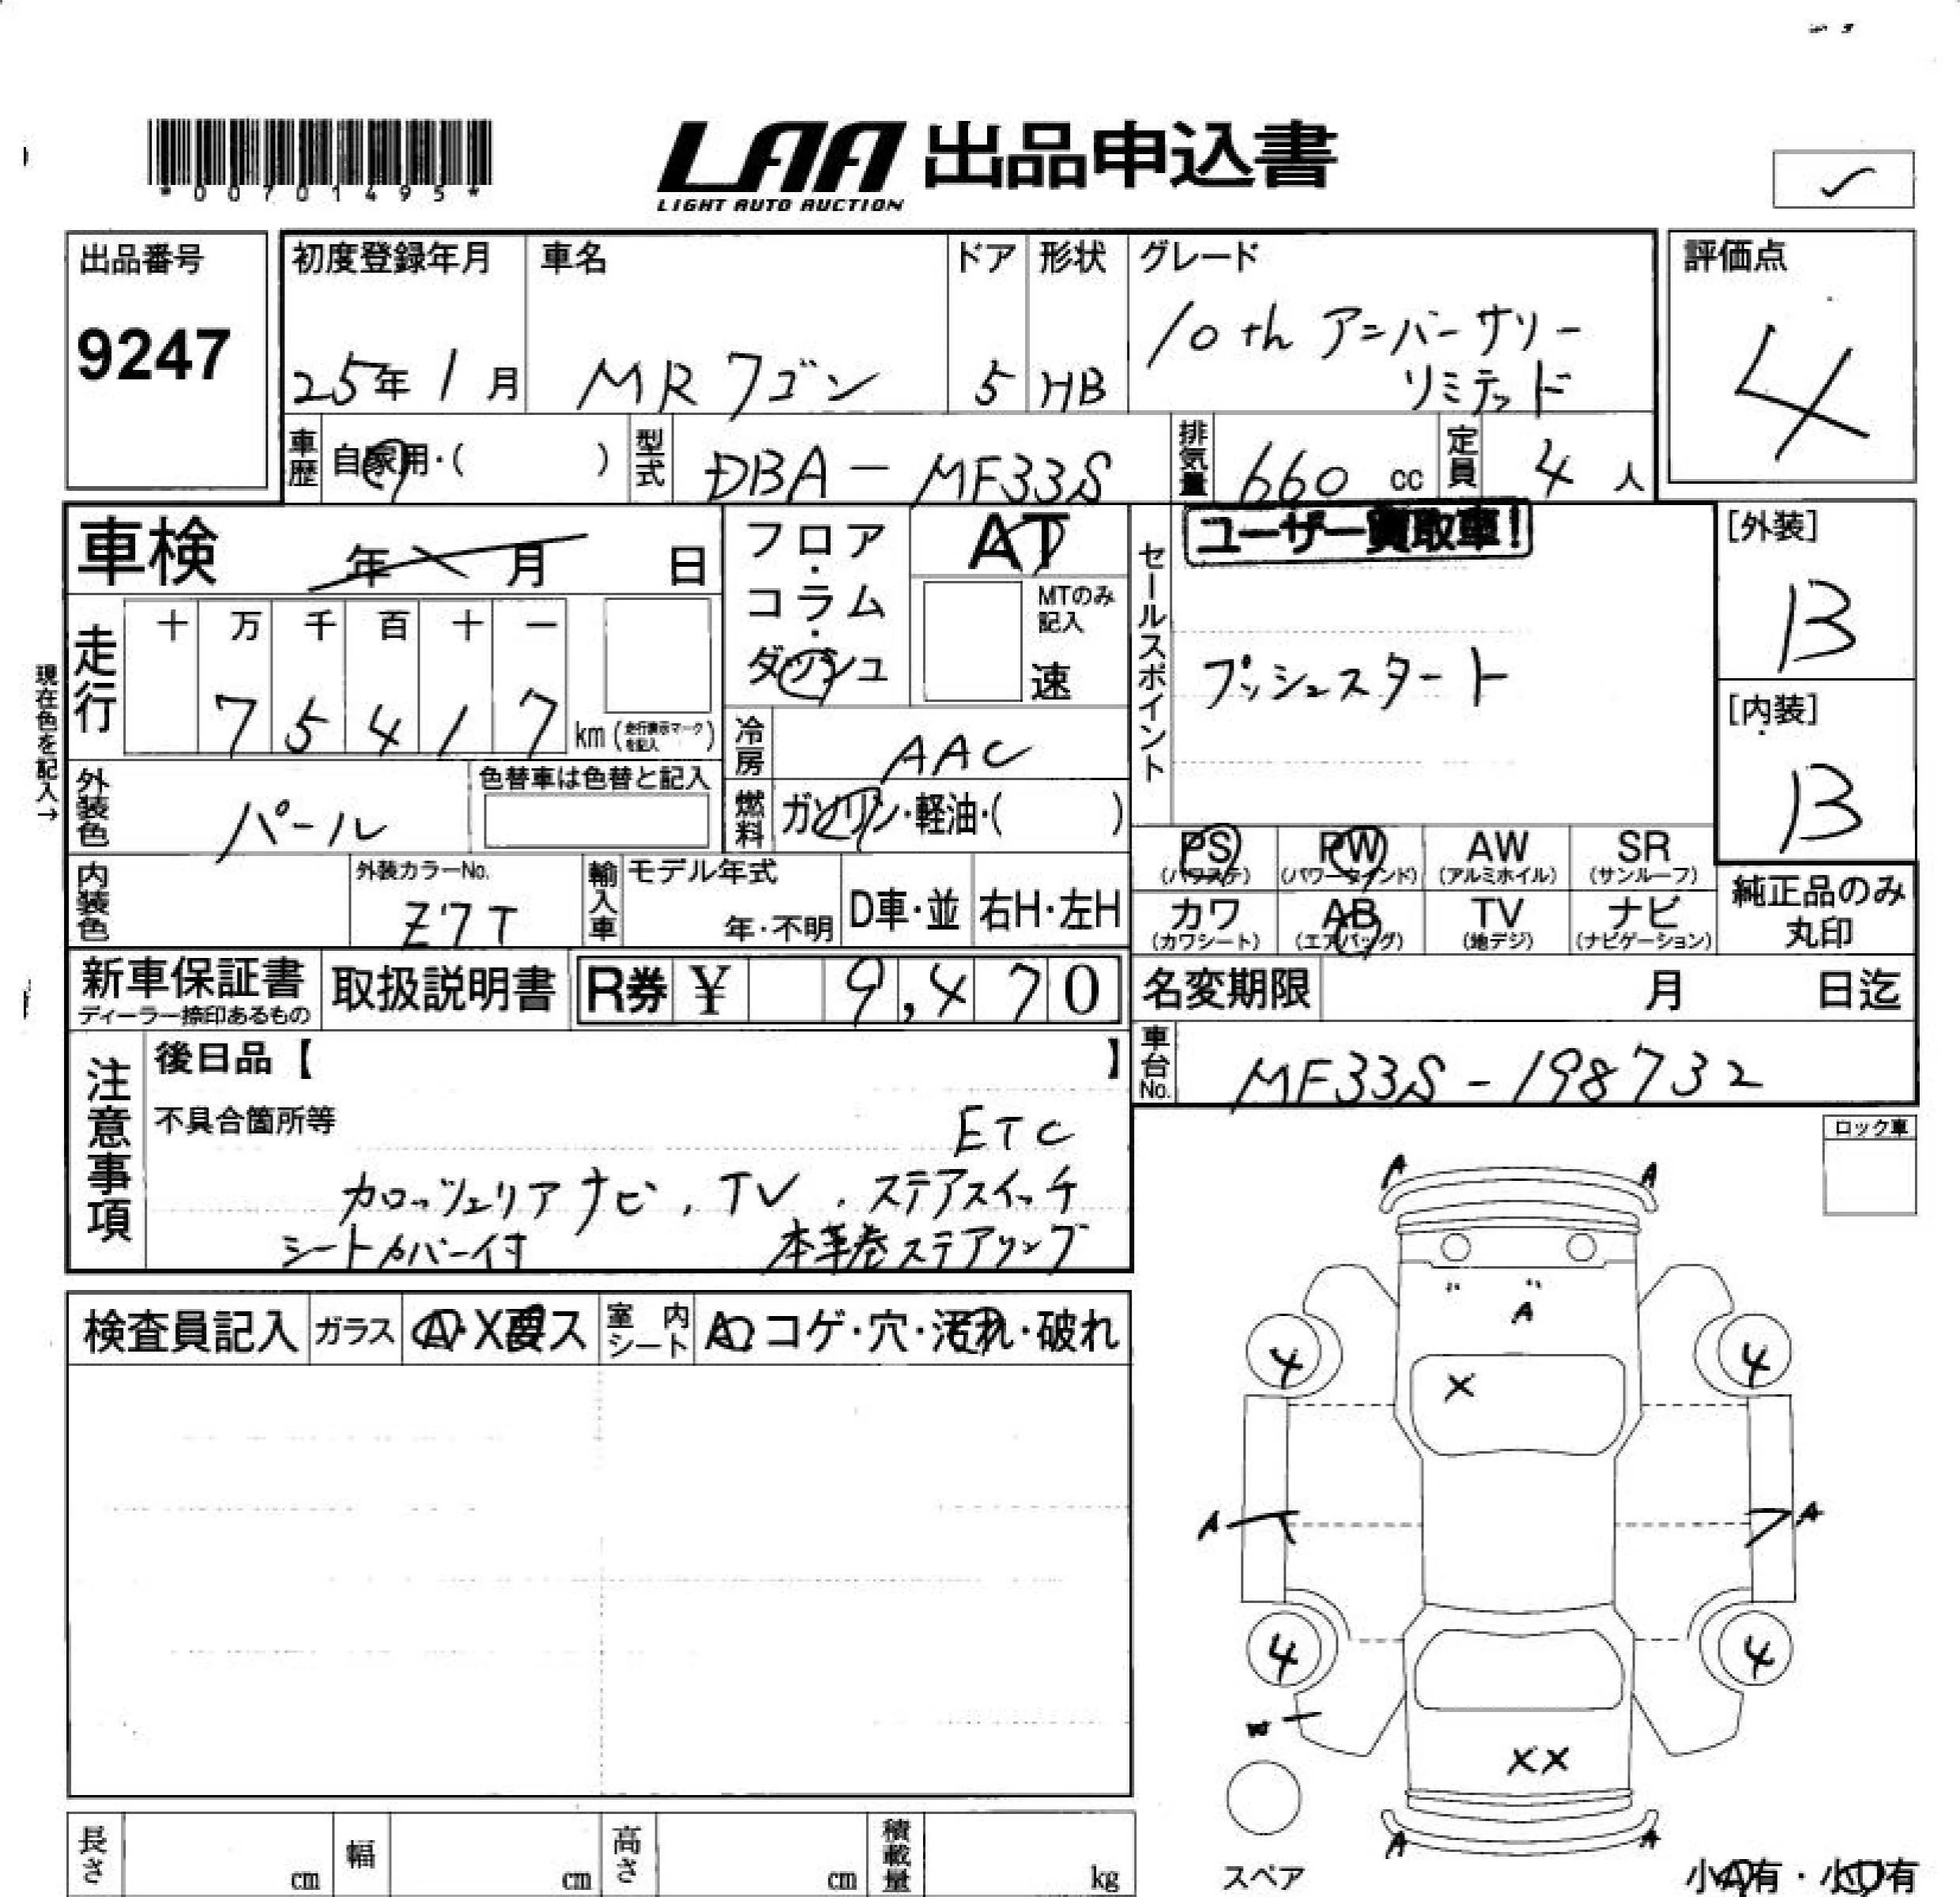 *00701495*
LAA 出品申込書
LIGHT AUTO AUCTION
出品番号
9247
初度登録年月
25年1月
車名
MRワゴン
ドア
5
形状
HB
グレード
10th アニバーサリー
リミテッド
評価点
4
車歴 自家用・( )
型式 DBA-MF33S
排気量 660 cc
定員 4人
車検 年 月 日
フロア・コラム・ダッシュ
AT
MTのみ記入
速
セールスポイント
ユーザー買取車!
プッシュスタート
[外装]
B
[内装]
B
現在色を記入→
走行
十 万 千 百 十 一
7 5 4 1 7 km (走行表示マークを記入)
冷房 AAC
燃料 ガソリン・軽油・( )
外装色 パール
色替車は色替と記入
内装色
外装カラーNo.
Z7T
輸入車
モデル年式
年・不明
D車・並
右H・左H
PS (パワステ)
PW (パワーウインド)
AW (アルミホイル)
SR (サンルーフ)
カワ (カワシート)
AB (エアバッグ)
TV (地デジ)
ナビ (ナビゲーション)
純正品のみ丸印
新車保証書
ディーラー捺印あるもの
取扱説明書
R券 ¥ 9,470
名変期限 月 日迄
車台No. MF33S-198732
注意事項
後日品【 】
不具合箇所等
ETC
カロッツェリアナビ、TV、ステアスイッチ
シートカバー付 本革巻ステアリング
ロック車
検査員記入
ガラス A・X要ス
室内シート A・コゲ・穴・汚れ・破れ
A A
A
4 4
X
A A
4 4
W
XX
A A
スペア
小A有・小U有
長さ cm
幅 cm
高さ cm
積載量 kg